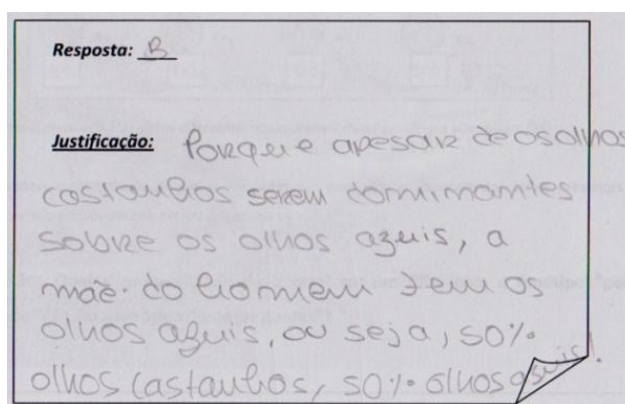 Resposta: B
Justificação: Porque apesar de os olhos
castanhos serem dominantes
sobre os olhos azuis, a
mãe do homem tem os
olhos azuis, ou seja, 50%
olhos castanhos, 50% olhos azuis!